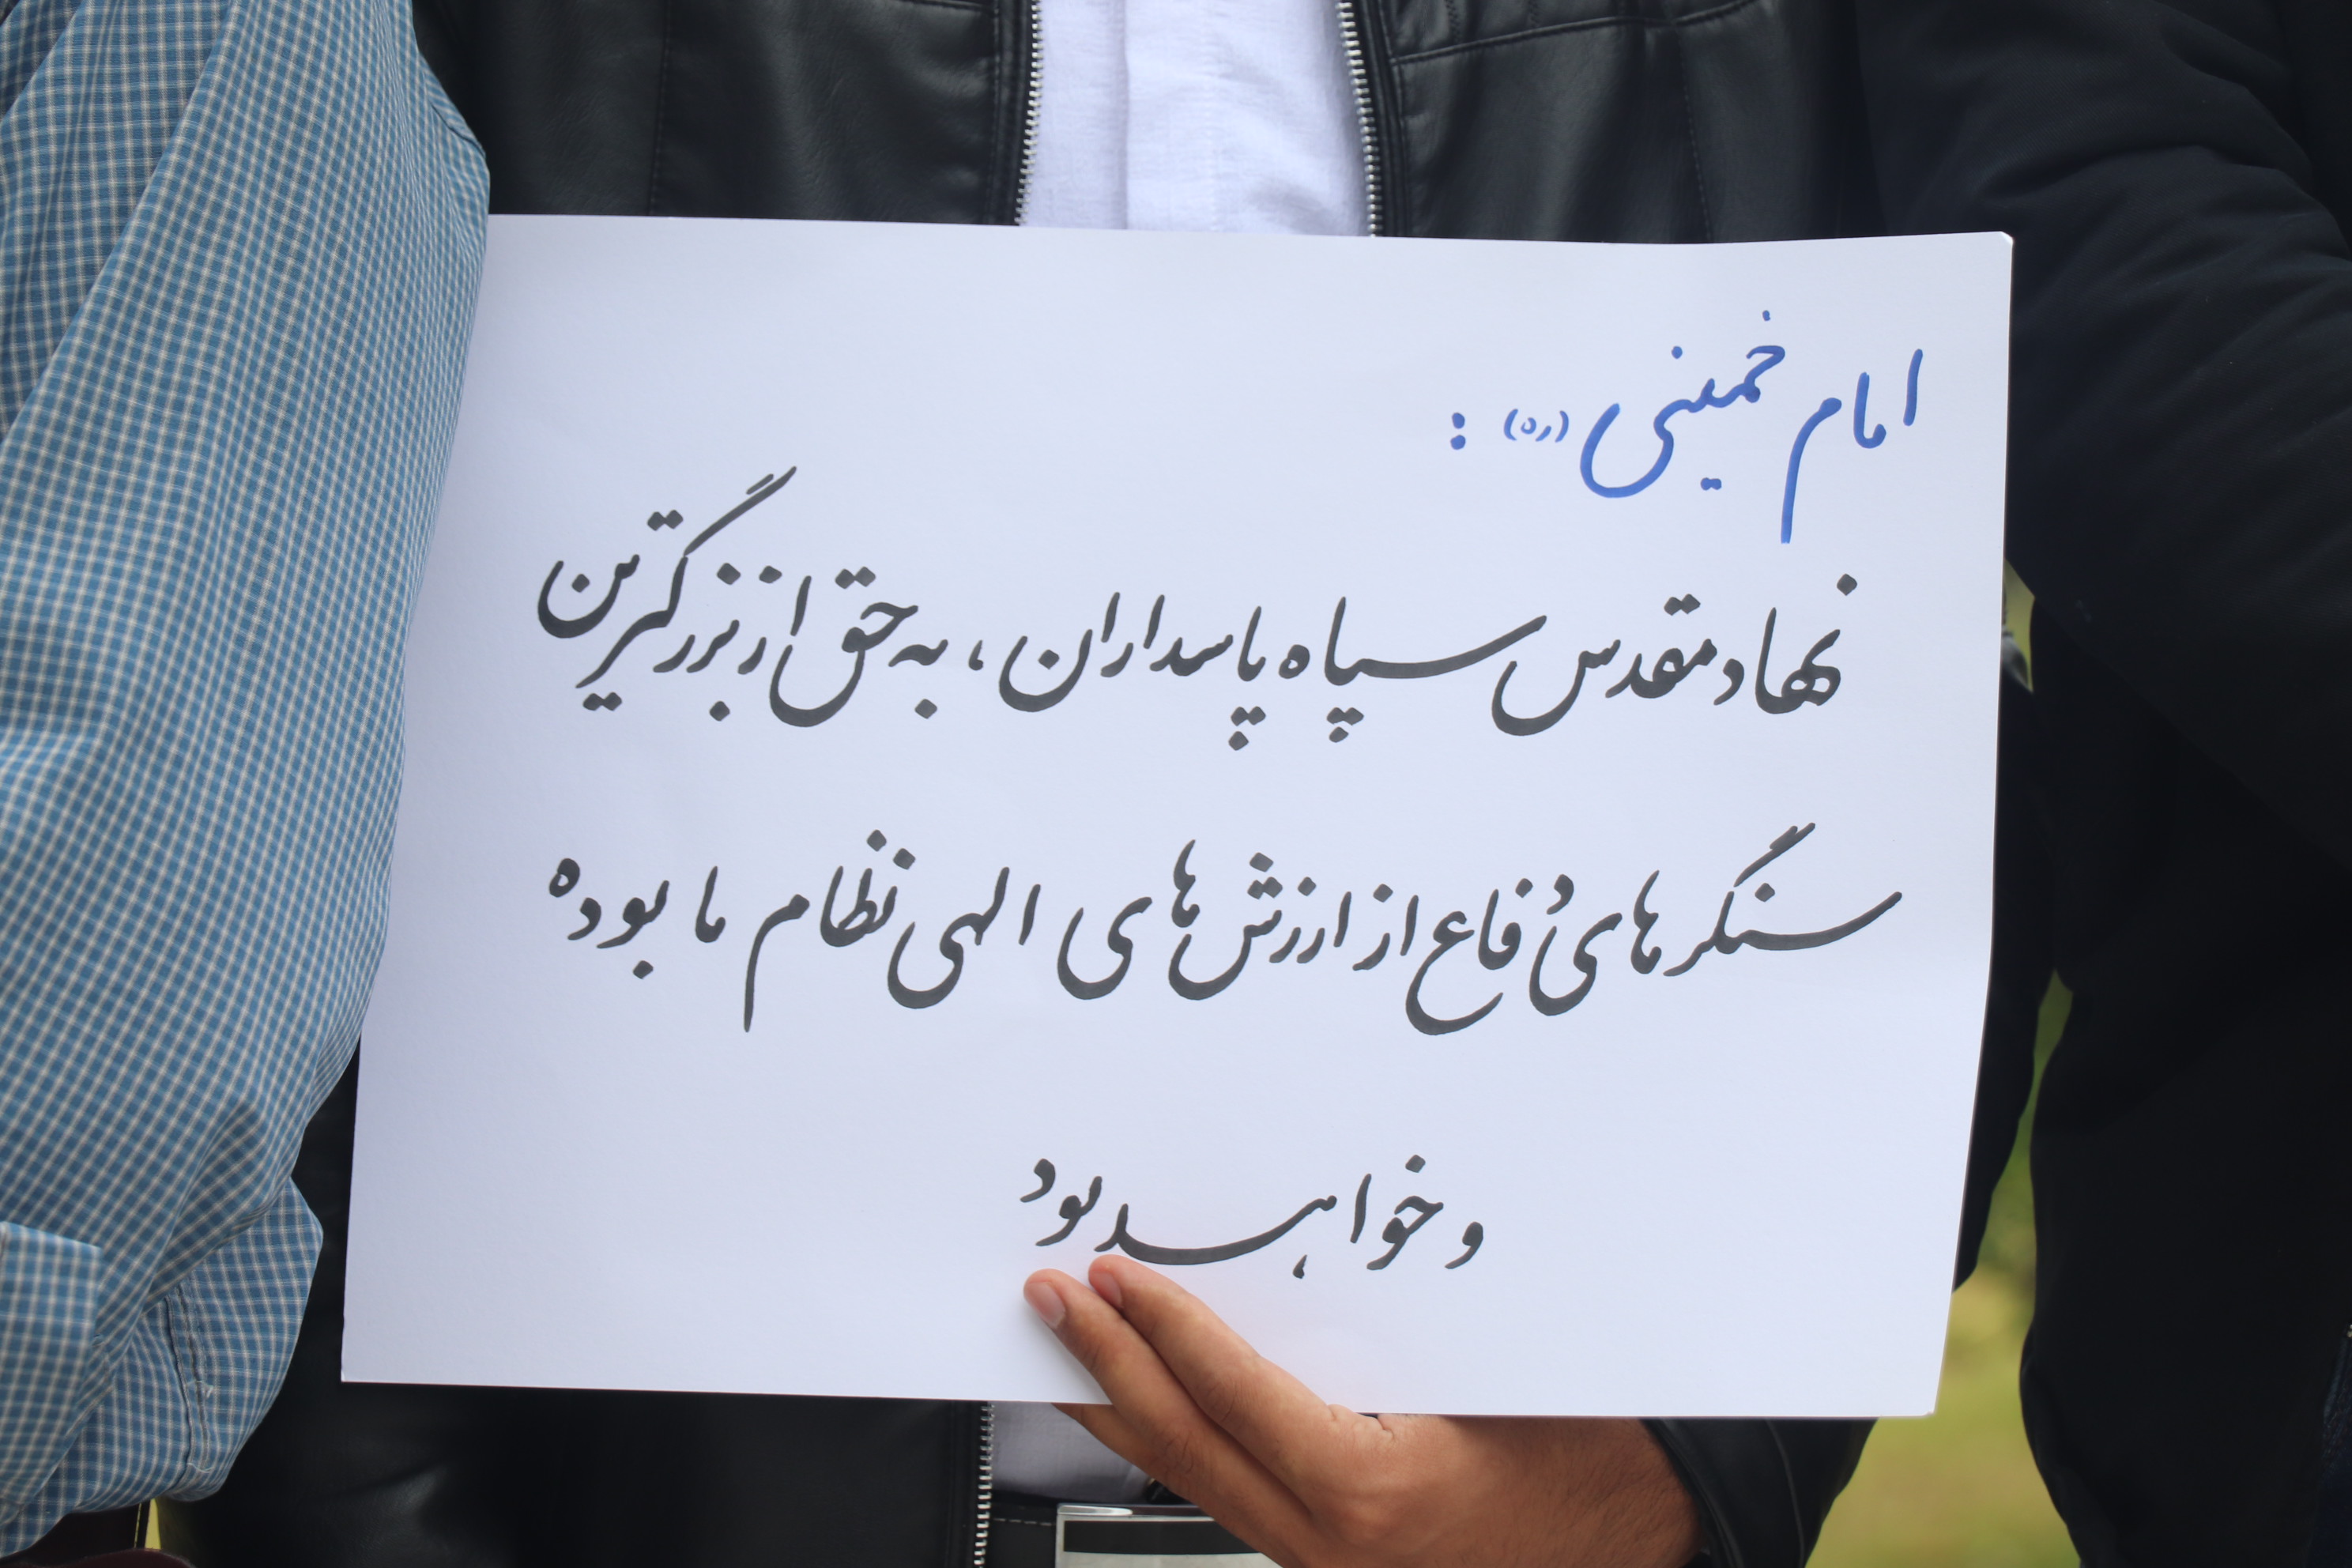 امام خمینی (ره) :
نهاد مقدس سپاه پاسداران، به حق از بزرگترین
سنگرهای دفاع از ارزش‌های الهی نظام ما بوده
و خواهد بود